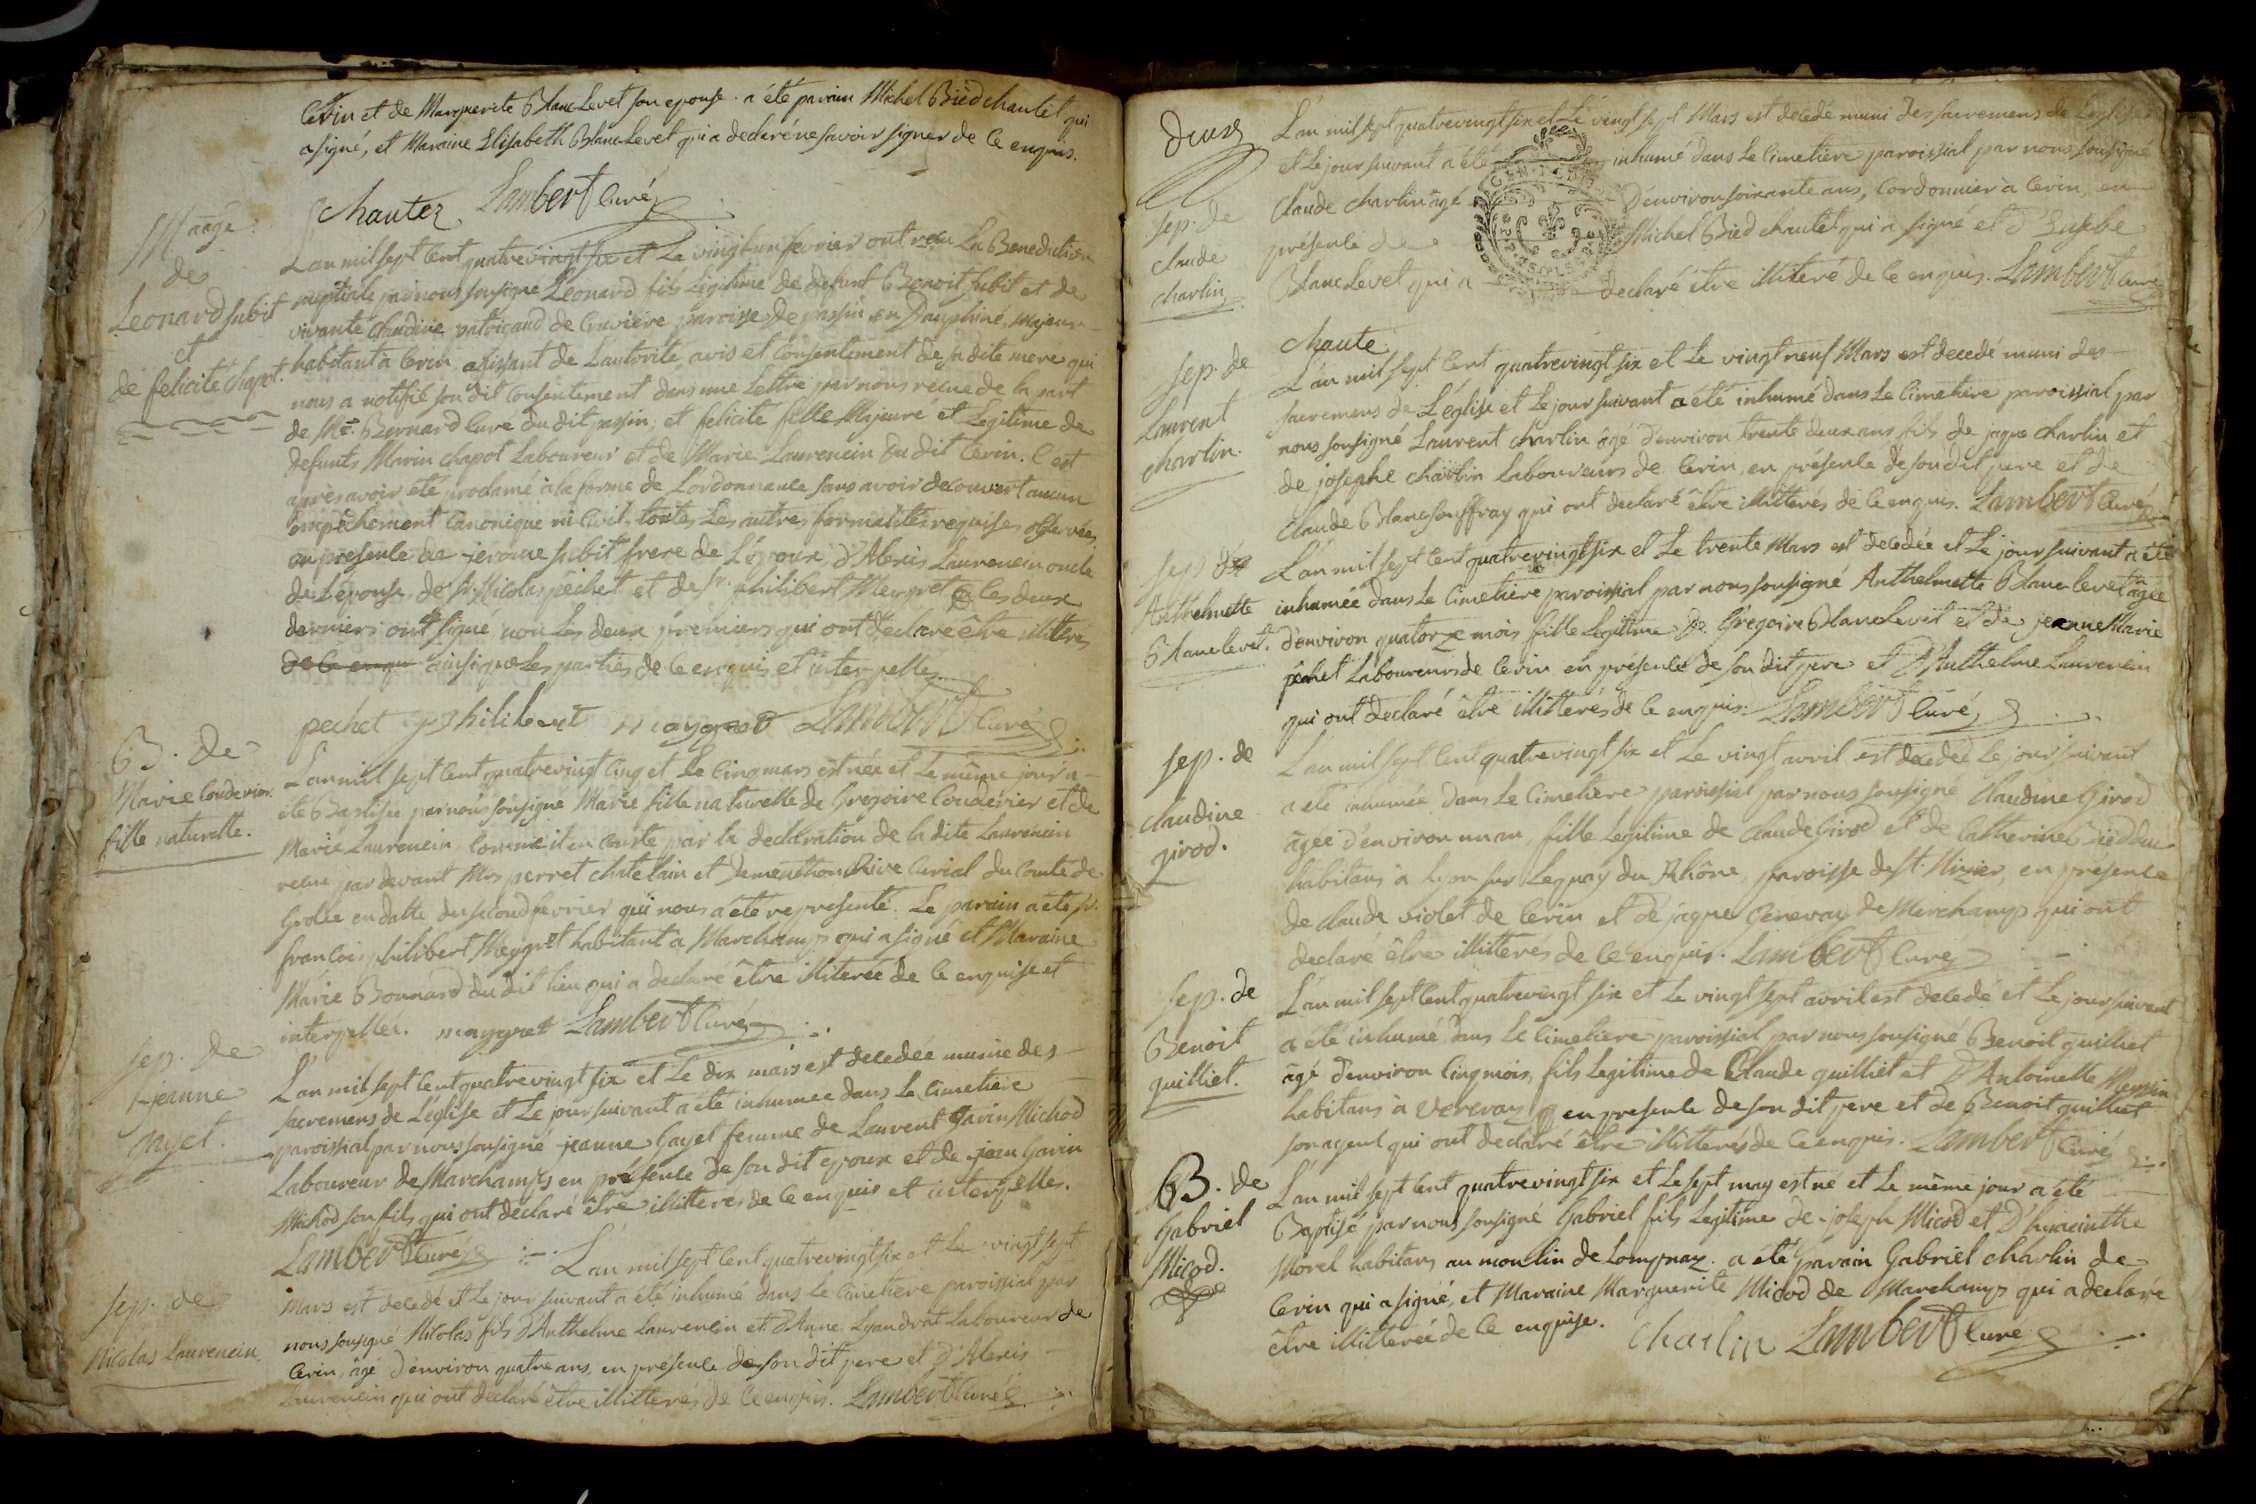 Cerin et de Marguerite Blanc Levet son epouse. a été parain Michel Bied chautet qui
a signé, et Maraine Elisabeth Blanc Levet qui a declaré ne savoir signer de ce enquis.
chautez Lambert Curé
Mariage
de
Leonard Subit
et
de felicité chapot.
L'an mil sept cent quatrevingt six et Le vingt un fevrier ont reçu La Benediction
nuptiale par nous sousigné Leonard fils Legitime de defunt Benoit Subit et de
vivante Claudine de Cruviere paroisse de passin en Dauphiné, majeur
habitant à Cerin agissant de Lautorité avis et Consentement de sa dite mere qui
nous a notifié son dit Consentement dans une Lettre par nous recue de la part
de Mr. Bernard Curé du dit passin, et felicité fille Majeure et Legitime de
defunts Marin chapot Laboureur et de Marie Laurencin du dit Cerin. C'est
après avoir été proclamé à la forme de L'ordonnance sans avoir decouvert aucun
empêchement Canonique ni Civil, toutes Les autres formalités requises observées,
en presence de jerome subit frere de L'époux, d'Alexis Laurencin oncle
de Lépouse, de Sr. Nicolas pechet et de Sr. philibert Meygret Les deux
derniers ont signé non Les deux premiers qui ont declaré être illiterés
de ce enqu ainsi que Les parties de ce enquis et interpellés.
pechet philibert maygret Lambert Curé
B. de
Marie Couderier
fille naturelle.
L'an mil sept cent quatrevingt cinq et Le cinq mars est née et Le même jour a
été Baptisée par nous sousigné Marie fille naturelle de Gregoire Couderier et de
Marie Laurencin, comme il en conste par la declaration de la dite Laurencin
recue par devant Mrs perret chatelain et Curial du Comté de
Grolée en datte du second fevrier qui nous a été representé. Le parain a été sr.
francois philibert Meygret habitant à Marchamps qui a signé et Maraine
Marie Bonnard du dit lieu qui a declaré être illiterée de ce enquise et
interpellée. maygret Lambert Curé
Sep. de
jeanne
gayet.
L'an mil sept cent quatrevingt six et Le dix mars est decedée munie des
sacremens de L'église et Le jour suivant a été inhumée dans Le Cimetiere
paroissial par nous sousigné jeanne Gayet femme de Laurent Gavin Michod
Laboureur de Marchamps en présence de son dit epoux et de jean Gavin
Michod son fils qui ont declaré être illiterés de ce enquis et interpellé.
Lambert Curé
Sep. de
Nicolas Laurencin.
L'an mil sept cent quatrevingt six et Le vingt sept
mars est decedé et Le jour suivant a été inhumé dans Le Cimetiere paroissial par
nous sousigné Nicolas fils d'Anthelme Laurencin et d'Anne Lyandrat Laboureur de
Cerin, âgé d'environ quatre ans, en présence de son dit pere et d'Alexis
Laurencin qui ont declaré être illitterés de ce enquis. Lambert Curé
Deux
Sep. de
claude
charlin.
L'an mil sept quatrevingt six et Le vingt sept Mars est decedé muni des sacremens de L'eglise
et Le jour suivant a été inhumé dans Le Cimetiere paroissial par nous sousigné
Claude charlin âgé d'environ soixante ans, Cordonnier à Cerin, en
présence de Michel Bied chautet qui a signé et d'Eusebe
Blanc Levet qui a declaré être illiteré de ce enquis. Lambert Curé
chaute
Sep. de
Laurent
charlin.
L'an mil sept Cent quatrevingt six et Le vingt neuf Mars est decedé muni des
sacremens de L'église et Le jour suivant a été inhumé dans Le Cimetiere paroissial par
nous sousigné Laurent charlin âgé d'environ trente deux ans fils de jaque charlin et
de josephe charlin Laboureurs de Cerin, en présence de son dit pere et de
Claude Blanc jouffray qui ont declaré être illitterés de ce enquis. Lambert Curé
Sep. de
Anthelmette
Blanc levet.
L'an mil sept cent quatrevingt six et Le trente Mars est decedée et Le jour suivant a été
inhumée dans Le Cimetiere paroissial par nous sousigné Anthelmette Blanc levet âgée
d'environ quatorze mois fille Legitime de Grégoire Blanc Levet et de jeanne Marie
pechet Laboureurs de Cerin en présence de son dit pere et d'Anthelme Laurencin
qui ont declaré être illitterés de ce enquis. Lambert Curé
Sep. de
claudine
girod.
L'an mil sept cent quatrevingt six et Le vingt avril est decedée Le jour suivant
a été inhumée dans Le Cimetiere paroissial par nous sousigné Claudine Girod
âgée d'environ un an, fille Legitime de Claude Girod et de Catherine
habitans à Lyon sur Le quay du Rhône, paroisse de St. Nizier, en présence
de Claude violet de Cerin et de jaque Cerevay de Marchamps qui ont
declaré être illitterés de ce enquis. Lambert Curé
Sep. de
Benoit
quilliet.
L'an mil sept Cent quatrevingt six et Le vingt sept avril est decedé et Le jour suivant
a été inhumé dans Le Cimetiere paroissial par nous sousigné Benoit quilliet
âgé d'environ cinq mois, fils Legitime de Claude quilliet et d'Antoinette
habitans à Vercray en presence de son dit pere et de Benoit quilliet
son ayeul qui ont declaré être illitterés de ce enquis. Lambert Curé
B. de
Gabriel
Micod.
L'an mil sept cent quatrevingt six et Le sept may est né et Le même jour a été
Baptisé par nous sousigné Gabriel fils Legitime de joseph Micod et d'hyacinthe
Morel habitans au moulin de Lompnaz. a été parain Gabriel charlin de
Cerin qui a signé, et Maraine Marguerite Micod de Marchamps qui a declaré
être illitterée de ce enquise. Charlin Lambert Curé